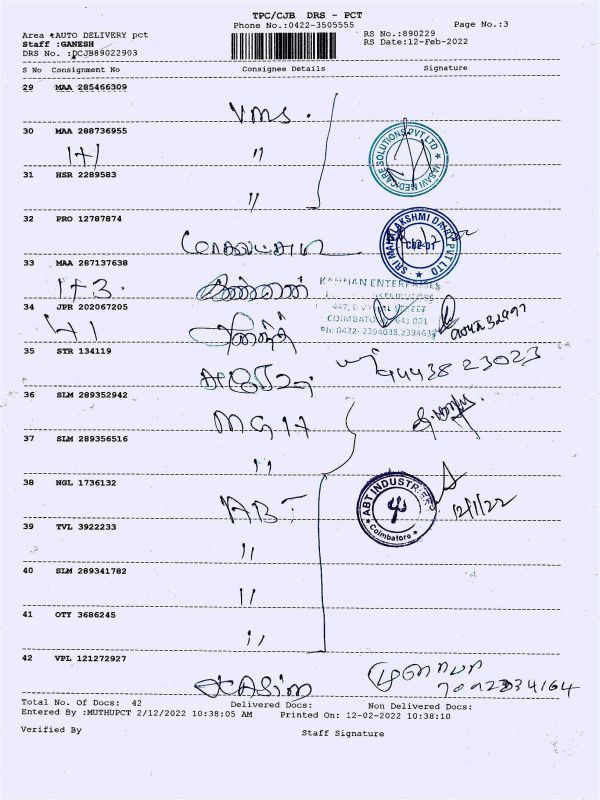 TPC/CJB DRS - PCT
Phone No.:0422-3505555 Page No.:3
Area :AUTO DELIVERY pct RS No.:890229
Staff :GANESH RS Date:12-Feb-2022
DRS No. :DCJB89022903
S No Consignment No Consignee Details Signature
29 MAA 285466309
VMS.
30 MAA 288736955
1+1 "
VASAVI MEDICARE SOLUTIONS PVT LTD
31 HSR 2289583
"
32 PRO 12787874
SRI MAHALAKSHMI DAIRY PVT LTD
CBE-01
33 MAA 287137638
1+3. கண்ணன்
KANNAN ENTERPRISES
DISTRIBUTORS
34 JPR 202067205
447, STREET
1+1 COIMBATORE 641 001
Ph: 0422-2394038, 2394638
35 STR 134119
9443823023
36 SLM 289352942
MGH
37 SLM 289356516
"
38 NGL 1736132
ABT
ABT INDUSTRIES
Coimbatore
12/1/22
39 TVL 3922233
"
40 SLM 289341782
"
41 OTY 3686245
"
42 VPL 121272927
Total No. Of Docs: 42 Delivered Docs: Non Delivered Docs:
Entered By :MUTHUPCT 2/12/2022 10:38:05 AM Printed On: 12-02-2022 10:38:10
Verified By Staff Signature